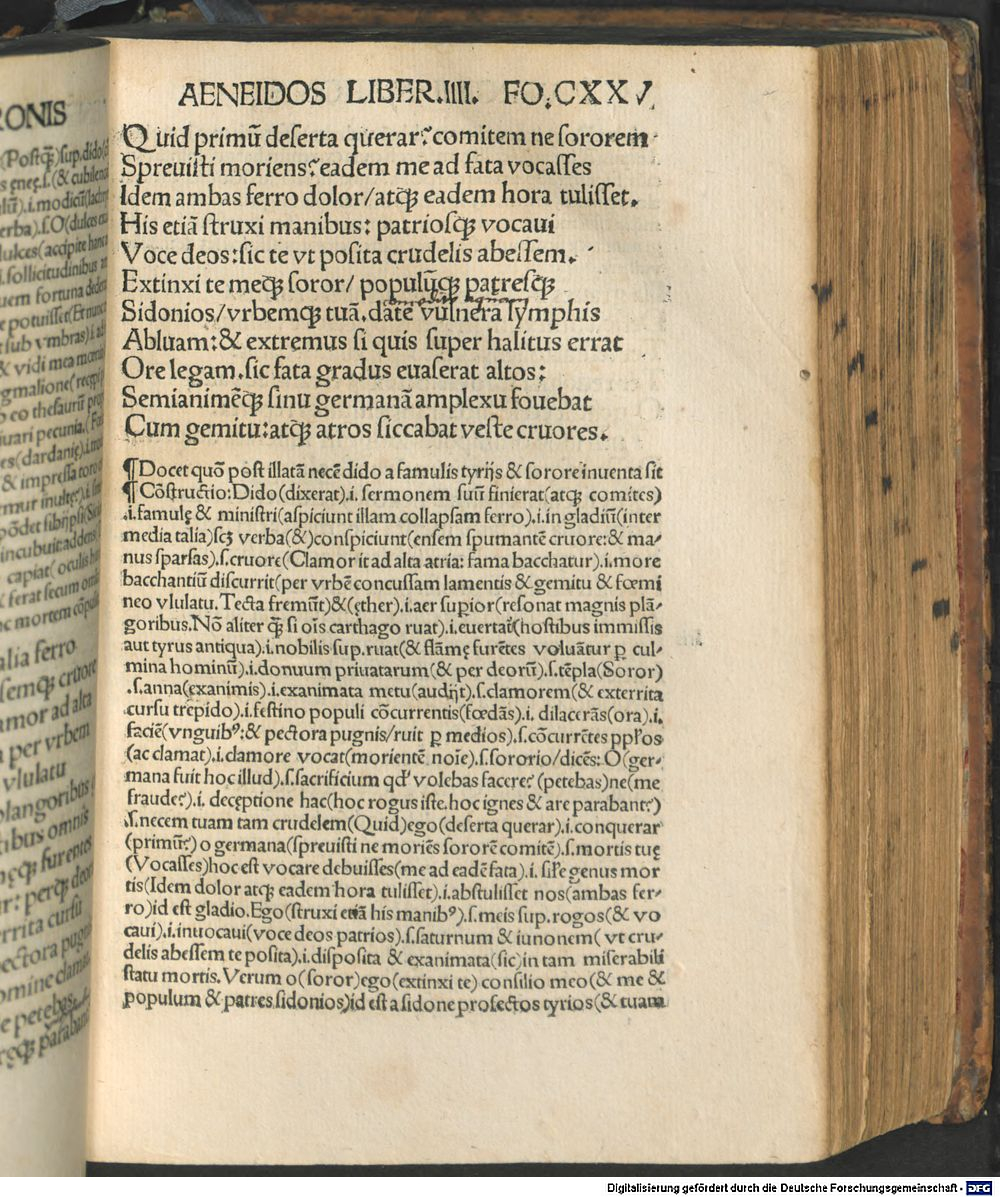 AENEIDOS LIBER.IIII. FO.CXXV.
Quid primũ deserta querar? comitem ne sororem
Spreuisti moriens? eadem me ad fata vocasses
Idem ambas ferro dolor/atq; eadem hora tulisset.
His etiã struxi manibus: patriosq; vocaui
Voce deos: sic te vt posita crudelis abessem.
Extinxi te meq; soror/ populũq; patresq;
Sidonios/vrbemq; tuã. date vulnera lymphis
Abluam: & extremus si quis super halitus errat
Ore legam. sic fata gradus euaserat altos:
Semianimẽq; sinu germanã amplexu fouebat
Cum gemitu: atq; atros siccabat veste cruores.
¶Docet quo post illatã necẽ dido a famulis tyrijs & sorore inuenta sit
¶Cõstructio: Dido(dixerat).i. sermonem suũ finierat(atq; comites)
.i.famulę & ministri(aspiciunt illam collapsam ferro).i.in gladiũ(inter
media talia)scz verba(&)conspiciunt(ensem spumantẽ cruore: & ma/
nus sparsas).s.cruore(Clamor it ad alta atria: fama bacchatur).i.more
bacchantiũ discurrit(per vrbẽ concussam lamentis & gemitu & fœmi
neo vlulatu. Tecta fremũt)&(ęther).i.aer supior(resonat magnis plã/
goribus. Nõ aliter q̃ si oĩs carthago ruat).i.euertat(hostibus immissis
aut tyrus antiqua).i.nobilis sup.ruat(& flãmę furẽtes voluãtur p cul/
mina hominũ).i.donuum priuatarum(& per deorũ).s.tẽpla(Soror)
.s.anna(exanimis).i.exanimata metu(audijt).s.clamorem(& exterrita
cursu trepido).i.festino populi cõcurrentis(fœdãs).i. dilacerãs(ora).i.
faciẽ(vnguibꝰ: & pectora pugnis/ruit p medios).s.cõcurrẽtes pplos
(ac clamat).i.clamore vocat(morientẽ noĩe).s.sororio/dicẽs: O(ger/
mana fuit hoc illud).s.sacrificium qd volebas facere? (petebas)ne(me
fraude?).i. deceptione hac(hoc rogus iste. hoc ignes & are parabant?)
.s.necem tuam tam crudelem(Quid)ego(deserta querar).i.conquerar
(primũ?) o germana(spreuisti ne moriẽs sororẽ comitẽ).s.mortis tuę
(Vocasses)hoc est vocare debuisses(me ad eadẽ fata).i. sile genus mor
tis(Idem dolor atq; eadem hora tulisset).i.abstulisset nos(ambas fer/
ro)id est gladio. Ego(struxi etiã his manibꝰ).s.meis sup.rogos(& vo
caui).i.inuocaui(voce deos patrios).s.saturnum & iunonem( vt cru/
delis abessem te posita).i.disposita & exanimata(sic)in tam miserabili
statu mortis. Verum o(soror)ego(extinxi te) consilio meo(& me &
populum & patres sidonios)id est a sidone profectos tyrios(& tuam
RONIS
Digitalisierung gefördert durch die Deutsche Forschungsgemeinschaft - DFG